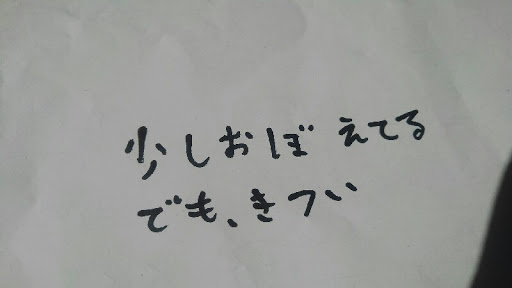 少しおぼえてる
でも、きつい